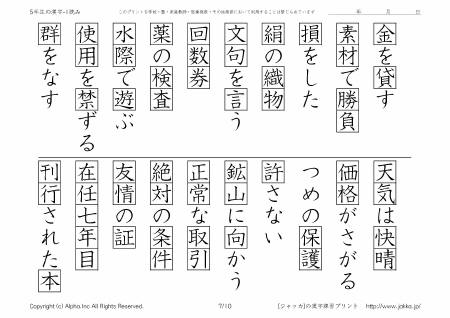 5年生の漢字-1 読み
このプリントを学校・塾・家庭教師・医療機関・その他施設において利用することは禁じられています
年 月 日
金を貸す
素材で勝負
損をした
絹の織物
文句を言う
回数券
薬の検査
水際で遊ぶ
使用を禁ずる
群をなす
天気は快晴
価格がさがる
つめの保護
許さない
鉱山に向かう
正常な取引
絶対の条件
友情の証
在任七年目
刊行された本
Copyright (c) Alpha.Inc All Rights Reserved.
7/10
[ジャッカ]の漢字練習プリント http://www.jakka.jp/